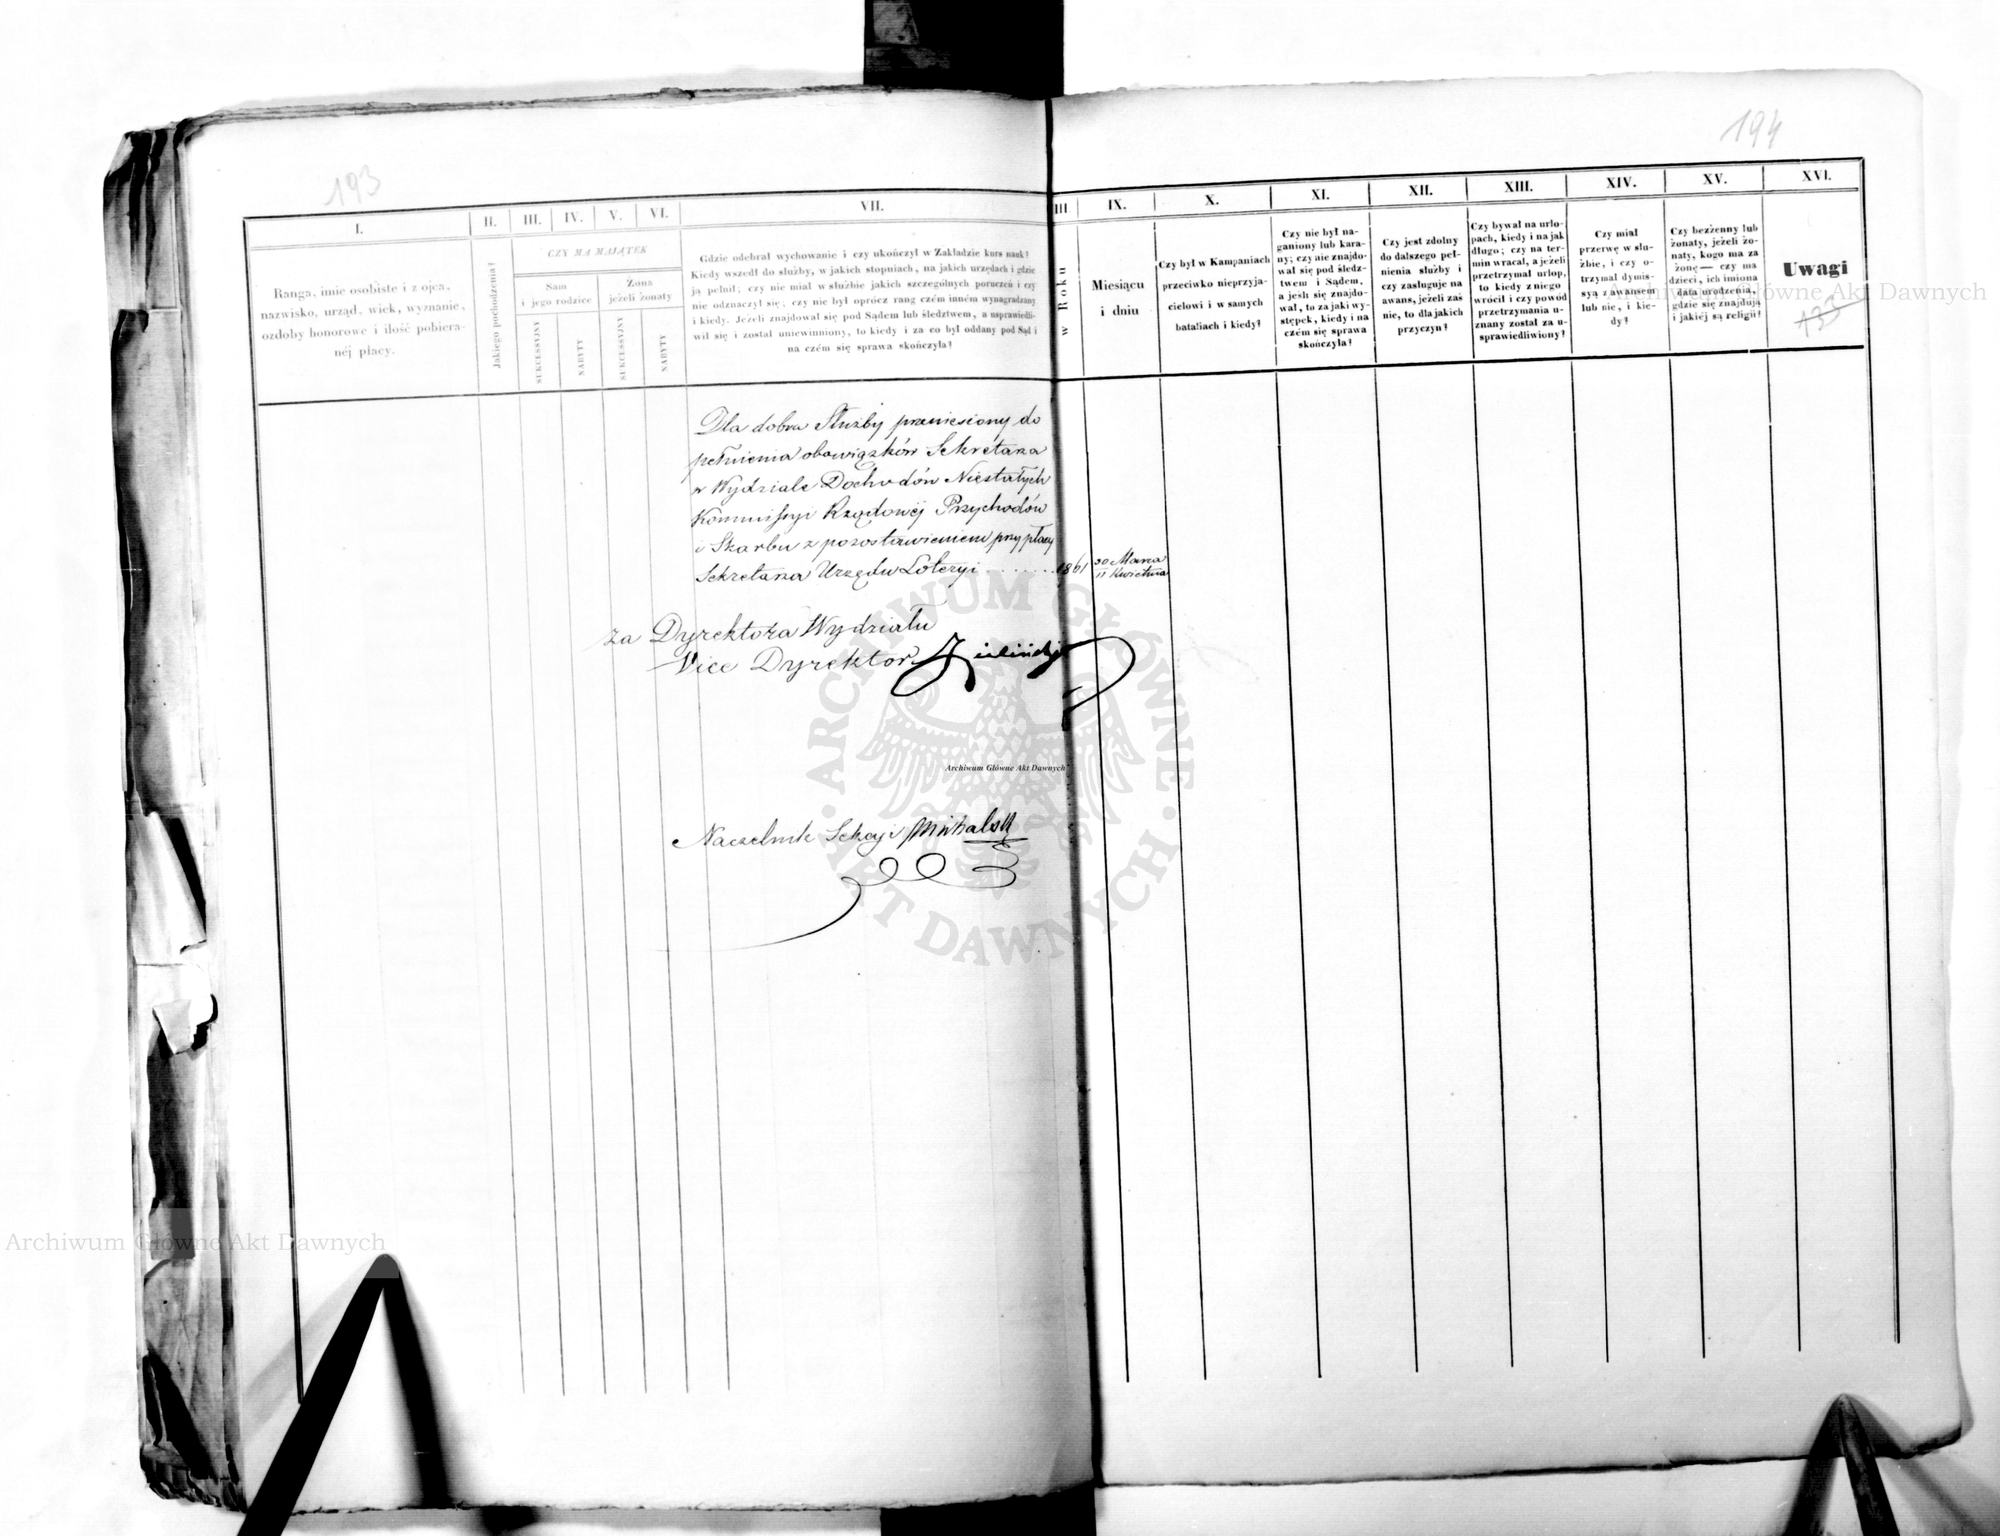 193
194
I.
II.
III.
IV.
V.
VI.
VII.
III.
IX.
X.
XI.
XII.
XIII.
XIV.
XV.
XVI.
Ranga, imie osobiste i z ojca,
nazwisko, urząd, wiek, wyznanie,
ozdoby honorowe i ilość pobiera-
néj płacy.
Jakiego pochodzenia?
CZY MA MAJĄTEK
Sam
i jego rodzice
Żona
jeżeli żonaty
SUKCESSYJNY
NABYTY
SUKCESSYJNY
NABYTY
Gdzie odebrał wychowanie i czy ukończył w Zakładzie kurs nauk?
Kiedy wszedł do służby, w jakich stopniach, na jakich urzędach i gdzie
ją pełnił; czy nie miał w służbie jakich szczególnych poruczeń i czy
nie odznaczył się; czy nie był oprócz rang czém inném wynagradzany
i kiedy. Jeżeli znajdował się pod Sądem lub śledztwem, a usprawiedli-
wił się i został uniewinniony, to kiedy i za co był oddany pod Sąd i
na czém się sprawa skończyła?
w Roku
Miesiącu
i dniu
Czy był w Kampaniach
przeciwko nieprzyja-
cielowi i w samych
bataliach i kiedy?
Czy nie był na-
ganiony lub kara-
ny; czy nie znajdo-
wał się pod śledz-
twem i Sądem,
a jeśli się znajdo-
wał, to za jaki wy-
stępek, kiedy i na
czém się sprawa
skończyła?
Czy jest zdolny
do dalszego peł-
nienia służby i
czy zasługuje na
awans, jeżeli zaś
nie, to dla jakich
przyczyn?
Czy bywał na urlo-
pach, kiedy i na jak
długo; czy na ter-
min wracał, a jeżeli
przetrzymał urlop,
to kiedy z niego
wrócił i czy powód
przetrzymania u-
znany został za u-
sprawiedliwiony?
Czy miał
przerwę w słu-
żbie, i czy o-
trzymał dymis-
syą z awansem
lub nie, i kie-
dy?
Czy bezżenny lub
żonaty, jeżeli żo-
naty, kogo ma za
żonę — czy ma
dzieci, ich imiona
data urodzenia,
gdzie się znajdują
i jakiéj są religii?
Uwagi
133
Dla dobra Służby przeniesiony do
pełnienia obowiązków Sekretarza
w Wydziale Dochodów Niestałych
Kommissyi Rządowéj Przychodów
i Skarbu z pozostawieniem przy płacy
Sekretarza Urzędu Loteryi . . . . . . . 1861 30 Marca
11 Kwietnia
Za Dyrektora Wydziału
Vice Dyrektor Zieliński
Naczelnik Sekcyi Michalski
ARCHIWUM GŁÓWNE
AKT DAWNYCH
Archiwum Główne Akt Dawnych
Archiwum Główne Akt Dawnych
Archiwum Główne Akt Dawnych